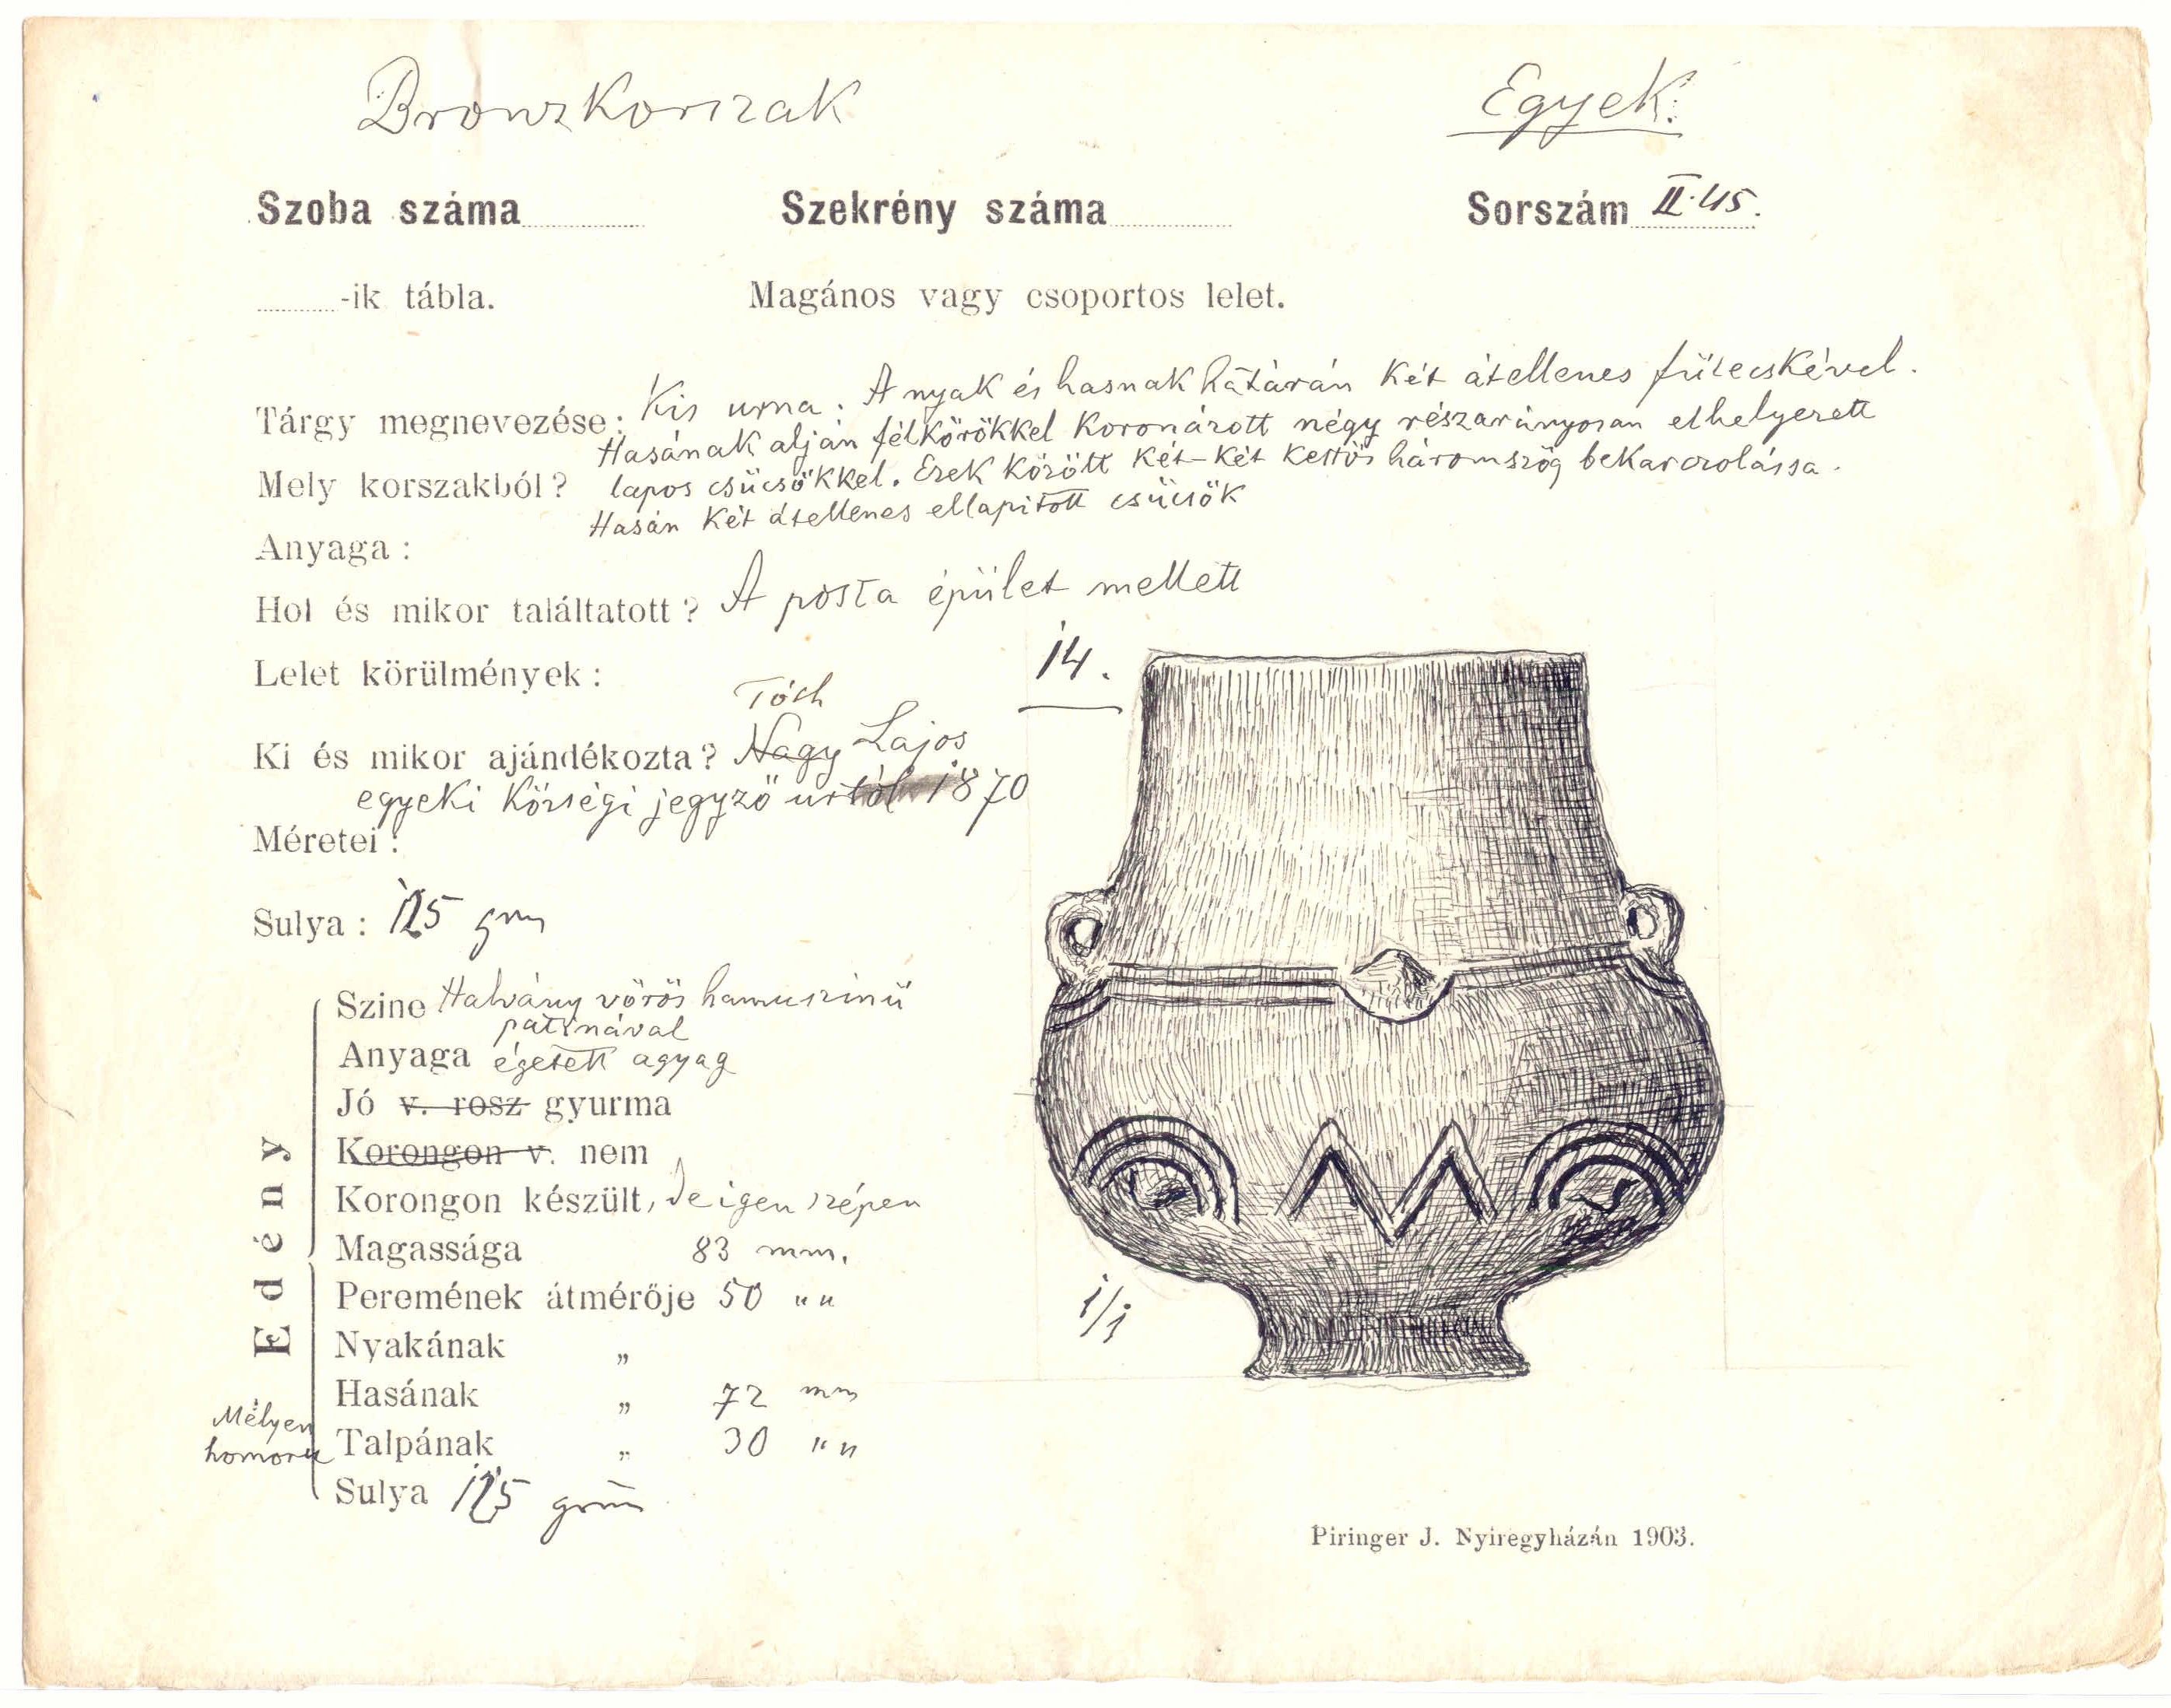 Bronzkorszak
Egyek.
Szoba száma
Szekrény száma
Sorszám II.45.
-ik tábla.
Magános vagy csoportos lelet.
Tárgy megnevezése: Kis urna. A nyak és hasnak határán két átellenes fülecskével.
Hasának alján félkörökkel koronázott négy részarányosan elhelyezett
Mely korszakból? lapos csücsökkel. Ezek között két-két kettős háromszög bekarczolássa.
Hasán két átellenes ellapitott csücsök
Anyaga:
Hol és mikor találtatott? A posta épület mellett
Lelet körülmények:
14.
Tóth
Ki és mikor ajándékozta? Nagy Lajos
egyeki községi jegyző urtól 1870
Méretei:
Sulya: 125 grm
Edény
Szine Halvány vörös hamuszinü
patinával
Anyaga égetett agyag
Jó v. rosz gyurma
Korongon v. nem
Korongon készült, de igen szépen
Magassága 83 mm.
Peremének átmérője 50 " "
1/1
Nyakának „
Hasának „ 72 mm
Mélyen
homoru
Talpának „ 30 " "
Sulya 125 grm
Piringer J. Nyiregyházán 1903.